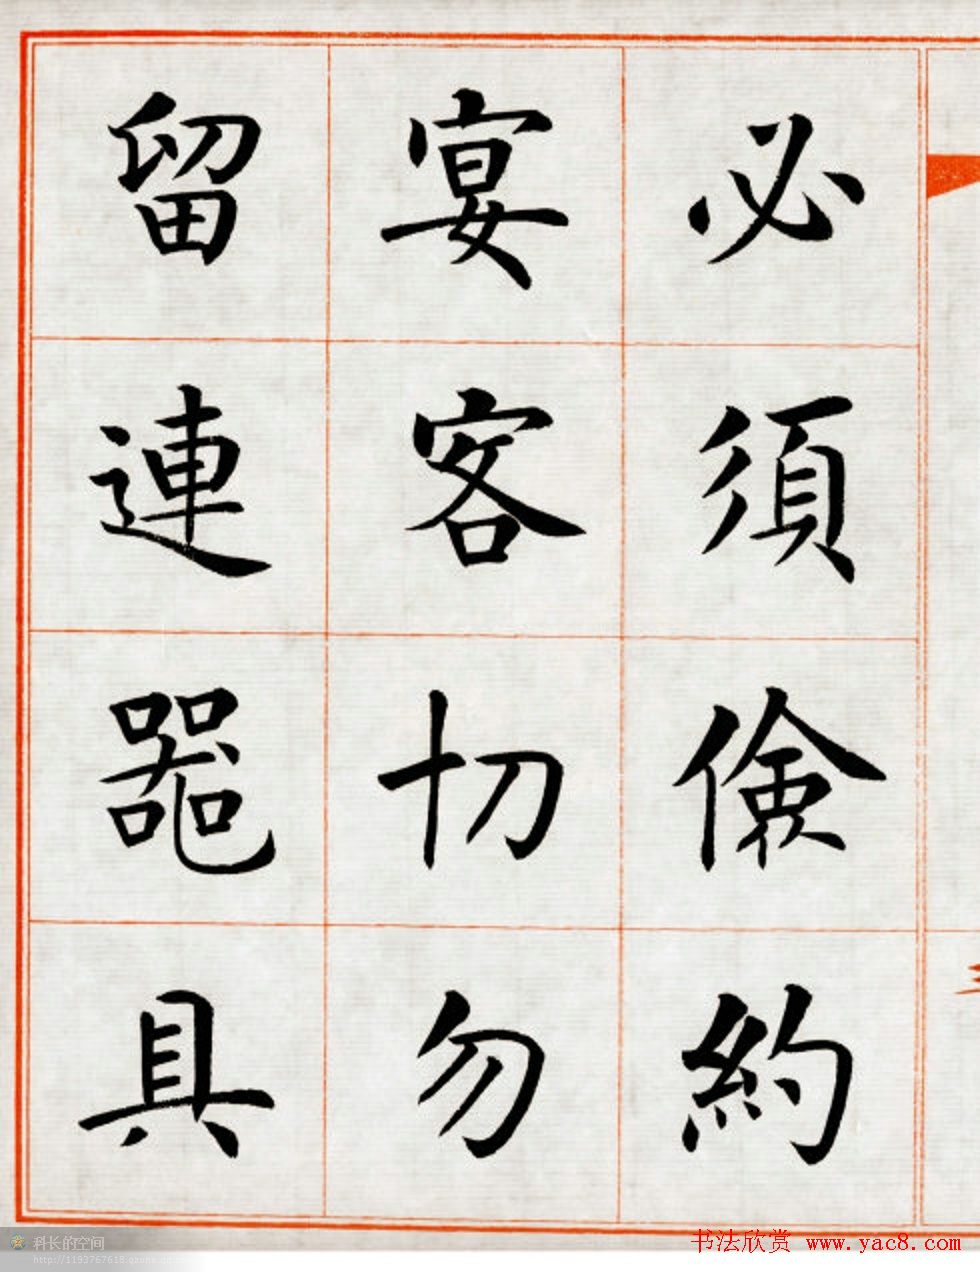 必須儉約
宴客切勿
留連器具
科长的空间
http://1193767618.qzone.qq.com
书法欣赏 www.yac8.com